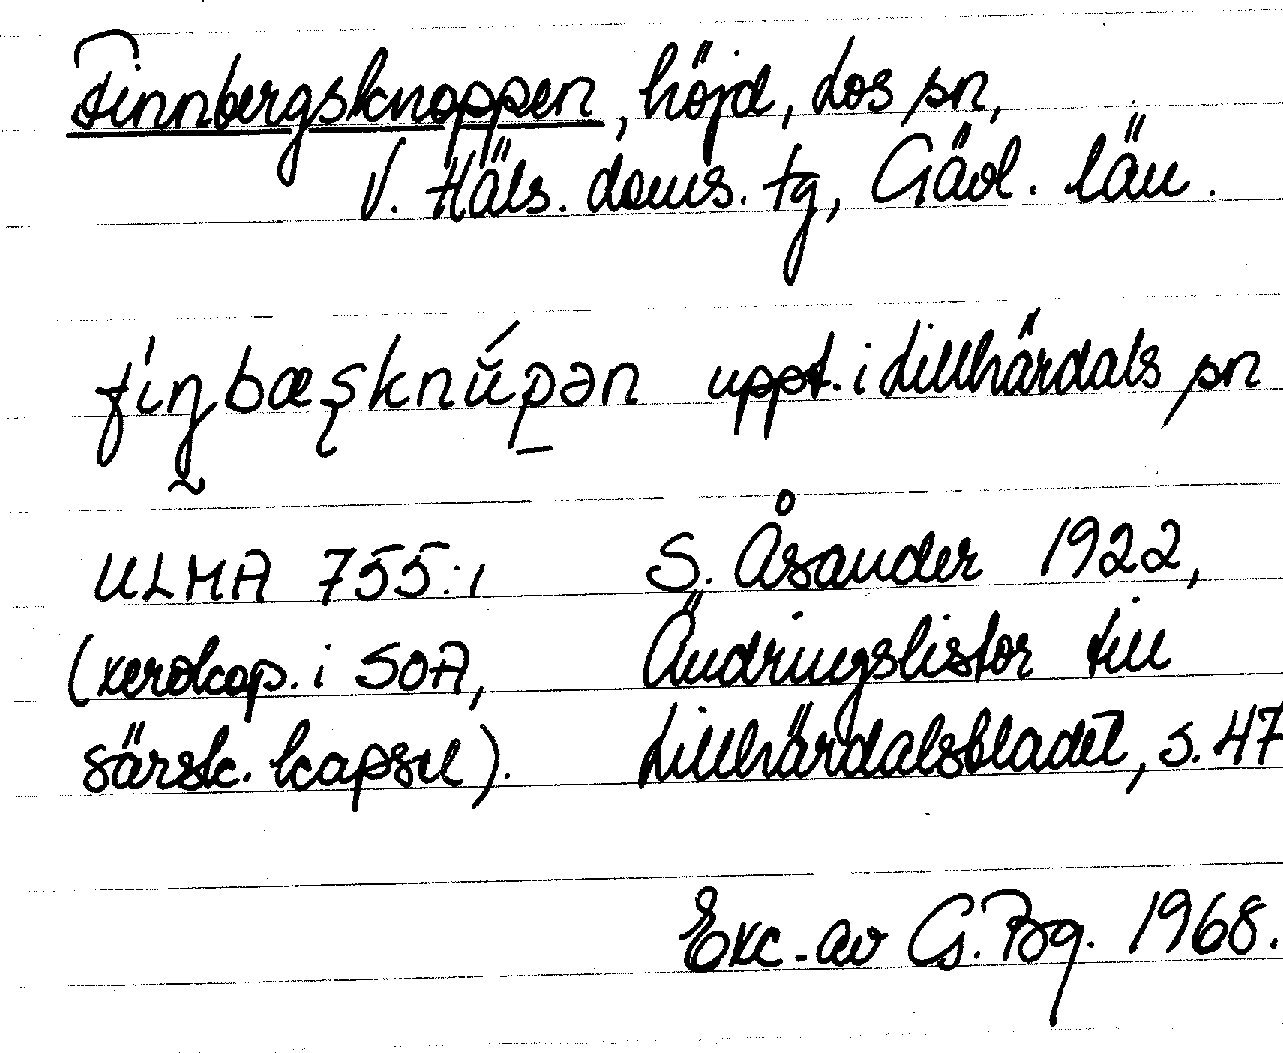 Finnbergsknoppen, höjd, Los sn,
V. Häls. doms. tg, Gävl. län.
fiŋbæʂknúpən uppt. i Lillhärdals sn
ULMA 755:1 S. Åsander 1922,
(xerokop. i SOA, Ändringslistor till
särsk. kapsel). Lillhärdalsbladet, s. 47
Exc. av G. Bg. 1968.